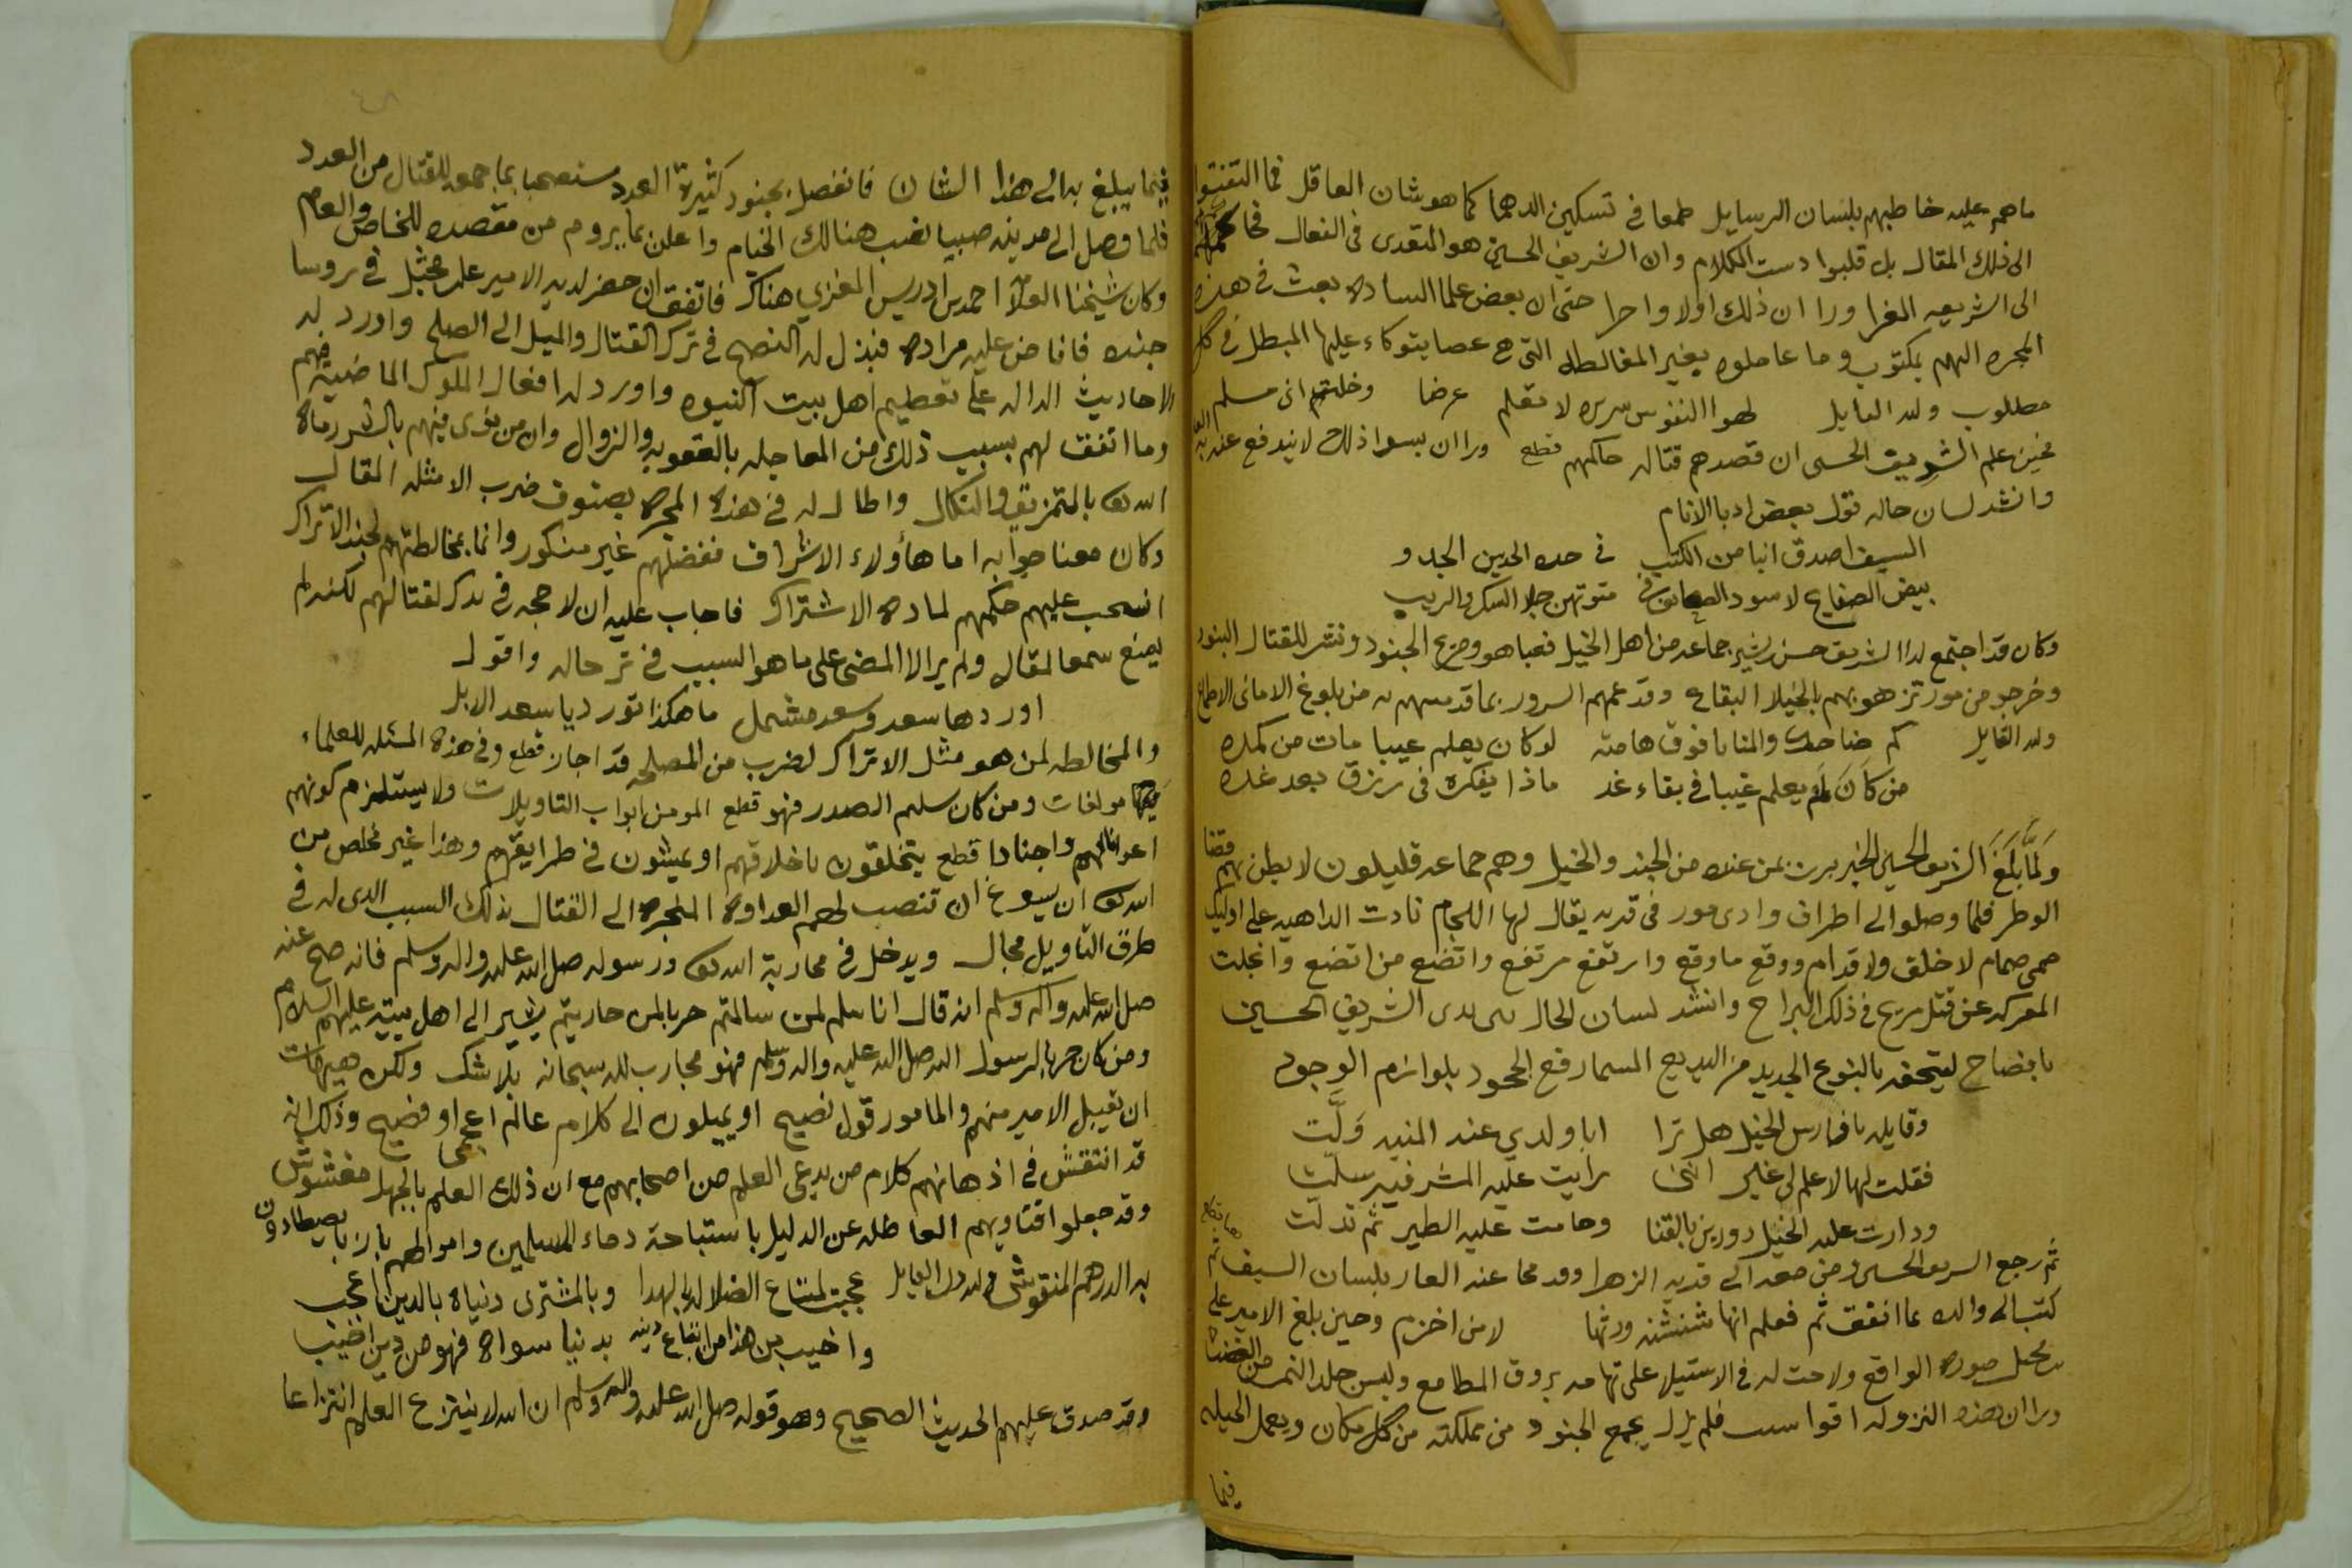 ماهم عليه خاطبهم بلسان الرسايل طمعا في تسكين الدهما كما هو شان العاقل فما التفتوا
الى ذلك المقال بل قلبوا دست الكلام وان الشريف الحسين هو المتعدى في الفعال
الى الشريعه الغرا ورا ان ذلك اولا واحرا حتى ان بعض علما الساده بعث في هذه
المجره اليهم بمكتوب وما عاملوه بغير المغالطه التي هي عصا يتوكاء عليها المبطل في كل
مطلوب ولله القايل لهوا النفوس سريره لا تعلم عرضا وخلتم اني مسلم
فحين علم الشريف الحسين ان قصدهم قتاله حاكمهم قطع ورا ان بسوا ذلك لا يندفع عنه
وانشد لسان حاله قول بعض ادبا الانام
السيف اصدق انبا من الكتب في حده الحد بين الجد و
بيض الصفايح لا سود الصحايف في متونهن جلا الشك والريب
وكان قد اجتمع لدا الشريف حسن بن بشير جماعه من اهل الخيل فعباهم وضرج الجنود ونشر للقتال البنود
وخرجو من مور تزهو بهم بالخيلا البقاع وقد عمهم السرور بما قد من بلوغ الاماني الاطماع
ولله القايل كم ضاحك والمنايا فوق هامته لو كان يعلم غيبا مات من كمده
من كان لم يعلم غيبا في بقاء غد ماذا يفكره في رزق بعد غده
ولما بلغ الشريف الحسين الخبر برز بمن عنده من الجند والخيل وهم جماعه قليلون لا يظن بهم قضا
الوطر فلما وصلوا الى اطراف وادي مور في قريه يقال لها اللجام نادت الداهيه على اوليك
صمي صمام لا خلف ولا قدام ووقع ما وقع وارتفع من ارتفع واتضع من اتضع وانجلت
المعركه عن قتل مريع في ذلك البراح وانشد لسان الحال بين يدى الشريف الحسين
بافصاح ليتحفه بالنوع الجديد من البديع المسما رفع الجحود بلوازم الوجود
وقايله يا فارس الخيل هل ترا ابا ولدي عند المنيه ولت
فقلت لها لا علم لي غير انني رايت عليه المشرفيه سلت
ودارت عليه الخيل دورين بالقنا وحامت عليه الطير ثم تدلت
ثم رجع الشريف الحسين ومن معه الى قريه الزهرا وقد محا عنه العار بلسان السيف
كتب الى والده بما اتفق ثم فعلم انها شنشنه ورثها لا من اخزم وحين بلغ الامير علي
بن مجثل صوره الواقع ولاحت له في الاستيلا على تهامه بروق المطامع ولبس جلد النمر من الغضب
ورا ان هذه النزوله اقوا سبب فلم يزل يجمع الجنود من مملكته من كل مكان ويعمل الحيله
فيما
٤٨
فيما يبلغ به الى هذا الشان فانفصل بجنود كثيرة العدد مستصحبا بما جمعه للقتال من العدد
فلما وصل الى مدينه صبيا نصب هنالك الخيام واعلن بما يروم من مقصده للخاص والعام
وكان شيخنا العلا احمد بن ادريس المغربي هناك فاتفق ان حضر لديه الامير علي بن مجثل في روسا
جنده فافاض عليه مراده فبذل له النصح في ترك القتال والميل الى الصلح واورد له
الاحاديث الداله على تعظيم اهل بيت النبوه واورد له افعال الملوك الماضيه فيهم
وما اتفق لهم بسبب ذلك من المعاجله بالعقوبه والزوال وان من نوى فيهم بالشر رماه
الله تعا بالتمزيق والنكال واطال له في هذه المجره بصنوف ضرب الامثله المقال
وكان معنا جوابه اما هأولاء الاشراف ففضلهم غير منكور وانما بمخالطتهم لجند الاتراك
انسحب عليهم حكمهم لماده الاشتراك فاجاب عليه ان لا حجه في ذكر لقتالهم لكنه لم
يصنع سمعا لمقاله ولم ير الا المضي على ما هو السبب في ترحاله واقول
اوردها سعد وسعد مشتمل ما هكذا تورد يا سعد الابل
والمخالطه لمن هو مثل الاتراك لضرب من المصلحه قد اجاز قطع وفي هذه المسئله للعلماء
فيها مولفات ومن كان سليم الصدر فهو قطع المومن ابواب التاويلات ولا يستلزم كونهم
اعوانا لهم واجنادا قطع يتخلقون باخلاقهم او يمشون في طرايقهم وهذا غير مخلص من
الله تعا ان يسوغ ان تنصب لهم العداوه المنجره الى القتال بذلك السبب الذى له في
طرق التاويل مجال ويدخل في محاربة الله تعا ورسوله صلى الله عليه واله وسلم فانه صح عنه
صلى الله عليه وآله وسلم انه قال انا سلم لمن سالمتم حرب لمن حاربتم يشير الى اهل بيته عليهم السلام
ومن كان حربا لرسول الله صلى الله عليه واله وسلم فهو محارب لله سبحانه بلا شك ولكن هيهات
ان يقبل الامير منهم والمامور قول نصيح او يميلون الى كلام عالم اعجمي او فصيح وذلك انه
قد انتقش في اذهانهم كلام من يدعي العلم من اصحابهم مع ان ذلك العلم بالجهل مغشوش
وقد جعلوا فتاويهم العاطله عن الدليل باستباحة دماء المسلمين واموالهم بازيا يصيطادون
به الدرهم المنقوش ولله در القايل عجبت لمبتاع الضلاله بالهدا وبالمشترى دنياه بالدين اعجب
واخيب من هذا من ابتاع دينه بدنيا سواه فهو من ذين اخيب
وقد صدق عليهم الحديث الصحيح وهو قوله صلى الله عليه واله وسلم ان الله لا ينتزع العلم انتزاعا